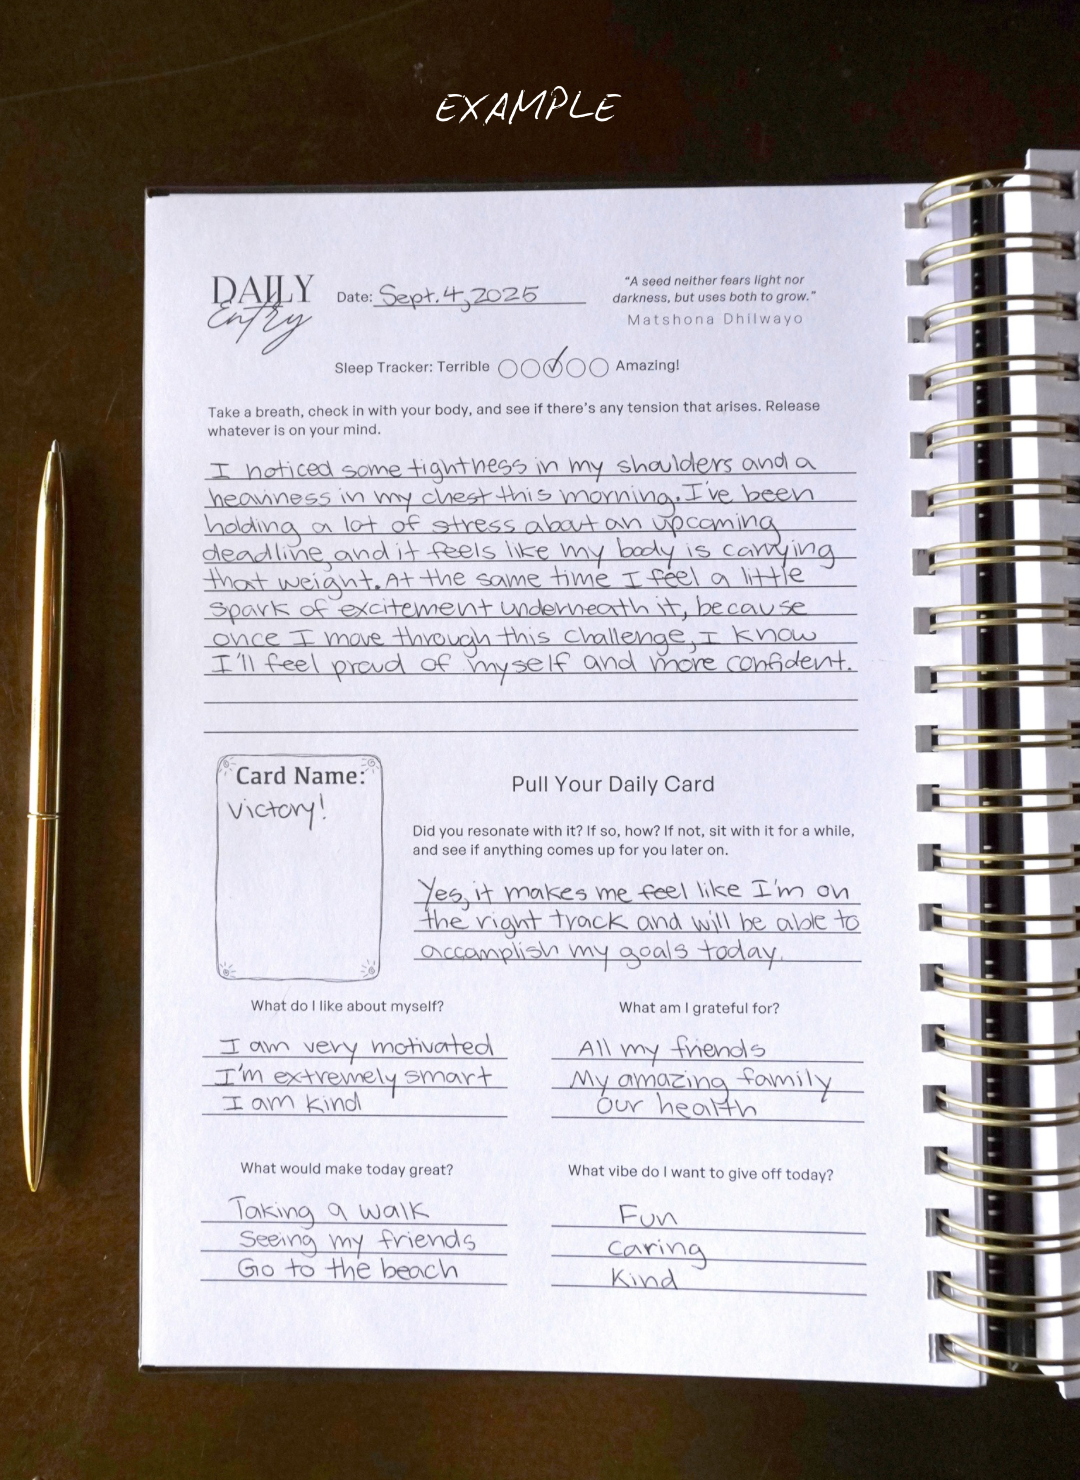 EXAMPLE
DAILY
Entry
Date: Sept. 4, 2025
"A seed neither fears light nor
darkness, but uses both to grow."
Matshona Dhilwayo
Sleep Tracker: Terrible Amazing!
Take a breath, check in with your body, and see if there's any tension that arises. Release
whatever is on your mind.
I noticed some tightness in my shoulders and a
heaviness in my chest this morning. I've been
holding a lot of stress about an upcoming
deadline, and it feels like my body is carrying
that weight. At the same time I feel a little
spark of excitement underneath it, because
once I move through this challenge, I know
I'll feel proud of myself and more confident.
Card Name:
Victory!
Pull Your Daily Card
Did you resonate with it? If so, how? If not, sit with it for a while,
and see if anything comes up for you later on.
Yes, it makes me feel like I'm on
the right track and will be able to
accomplish my goals today.
What do I like about myself?
I am very motivated
I'm extremely smart
I am kind
What am I grateful for?
All my friends
My amazing family
Our health
What would make today great?
Taking a walk
Seeing my friends
Go to the beach
What vibe do I want to give off today?
Fun
Caring
Kind